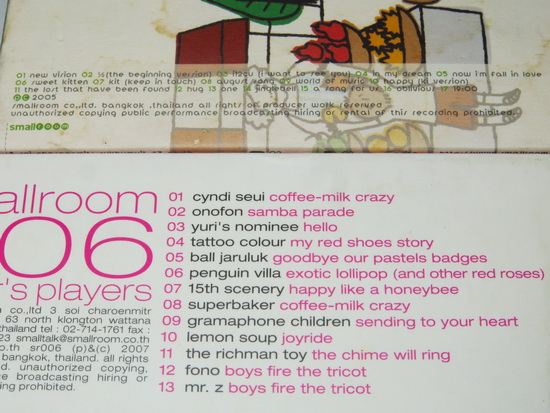 01 new vision 02 ½(the beginning version) 03 i12cu (i want to see you) 04 in my dream 05 now i'm fall in love
06 sweet kitten 07 kit (keep in touch) 08 august song 09 world of music 10 happy (ki version)
11 the lost that have been found 12 hug 13 one 14 jinglebell 15 a song for ur 16 oblivious 17 19:00
℗© 2005
smallroom co.,ltd. bangkok ,thailand all rights of producer work reserved
unauthorized copying public performance broadcasting hiring or rental of this recording prohibited.
smallroom
allroom
06
r's players
n co.,ltd 3 soi charoenmitr
63 north klongton wattana
thailand tel : 02-714-1761 fax :
23 smalltalk@smallroom.co.th
co.th sr006 (p)&(c) 2007
bangkok, thailand. all rights
d. unauthorized copying,
ce broadcasting hiring or
ing prohibited.
01 cyndi seui coffee-milk crazy
02 onofon samba parade
03 yuri's nominee hello
04 tattoo colour my red shoes story
05 ball jaruluk goodbye our pastels badges
06 penguin villa exotic lollipop (and other red roses)
07 15th scenery happy like a honeybee
08 superbaker coffee-milk crazy
09 gramaphone children sending to your heart
10 lemon soup joyride
11 the richman toy the chime will ring
12 fono boys fire the tricot
13 mr. z boys fire the tricot